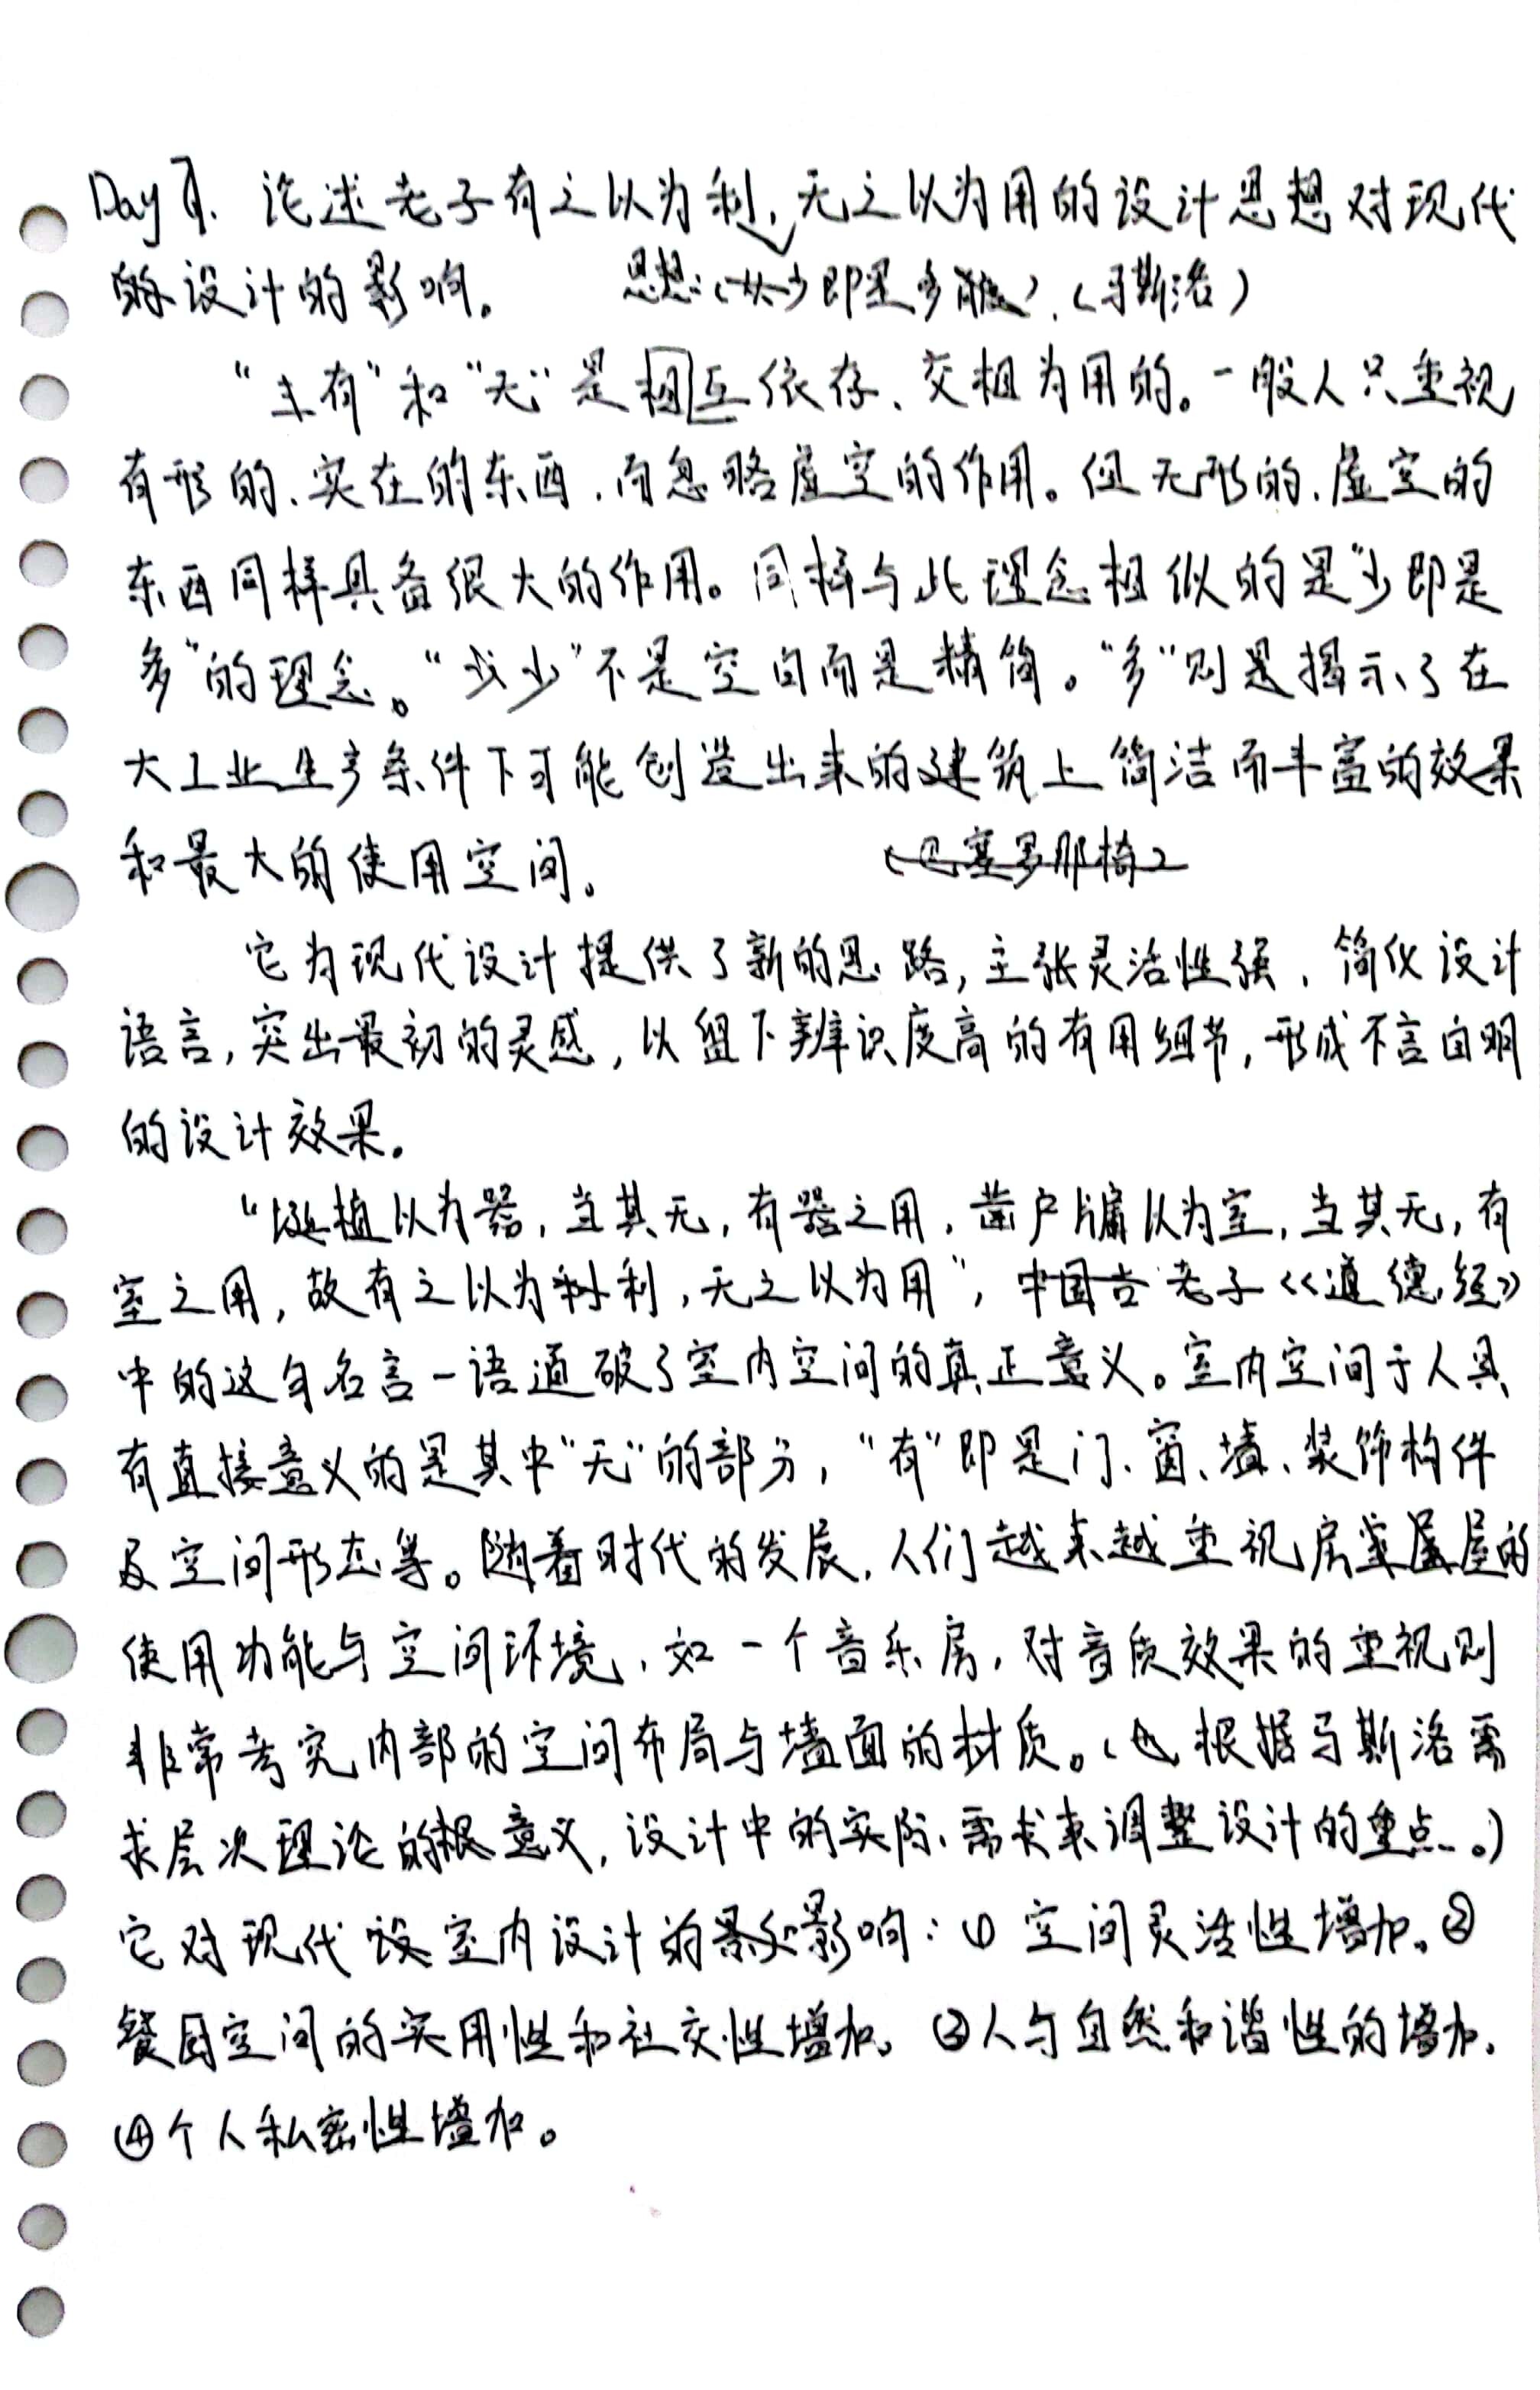 Day 7. 论述老子有之以为利,无之以为用的设计思想对现代
的设计的影响。 思想:(少即是多),(马斯洛)
"有"和"无"是相互依存、交相为用的。一般人只重视
有形的、实在的东西,而忽略虚空的作用。但无形的、虚空的
东西同样具备很大的作用。同样与此理念相似的是"少即是
多"的理念。"少"不是空白而是精简。"多"则是揭示了在
大工业生产条件下可能创造出来的建筑上简洁而丰富的效果
和最大的使用空间。 (巴塞罗那椅)
它为现代设计提供了新的思路,主张灵活性强,简化设计
语言,突出最初的灵感,以留下辨识度高的有用细节,形成不言自明
的设计效果。
"埏植以为器,当其无,有器之用,凿户牖以为室,当其无,有
室之用,故有之以为利,无之以为用",老子《道德经》
中的这句名言一语道破了室内空间的真正意义。室内空间于人具
有直接意义的是其中"无"的部分,"有"即是门、窗、墙、装饰构件
及空间形态等。随着时代的发展,人们越来越重视房屋的
使用功能与空间环境,如一个音乐房,对音质效果的重视则
非常考究内部的空间布局与墙面的材质。(根据马斯洛需
求层次理论的意义,设计中的实际需求来调整设计的重点。)
它对现代室内设计的影响:① 空间灵活性增加。②
餐厨空间的实用性和社交性增加。③人与自然和谐性的增加。
④个人私密性增加。